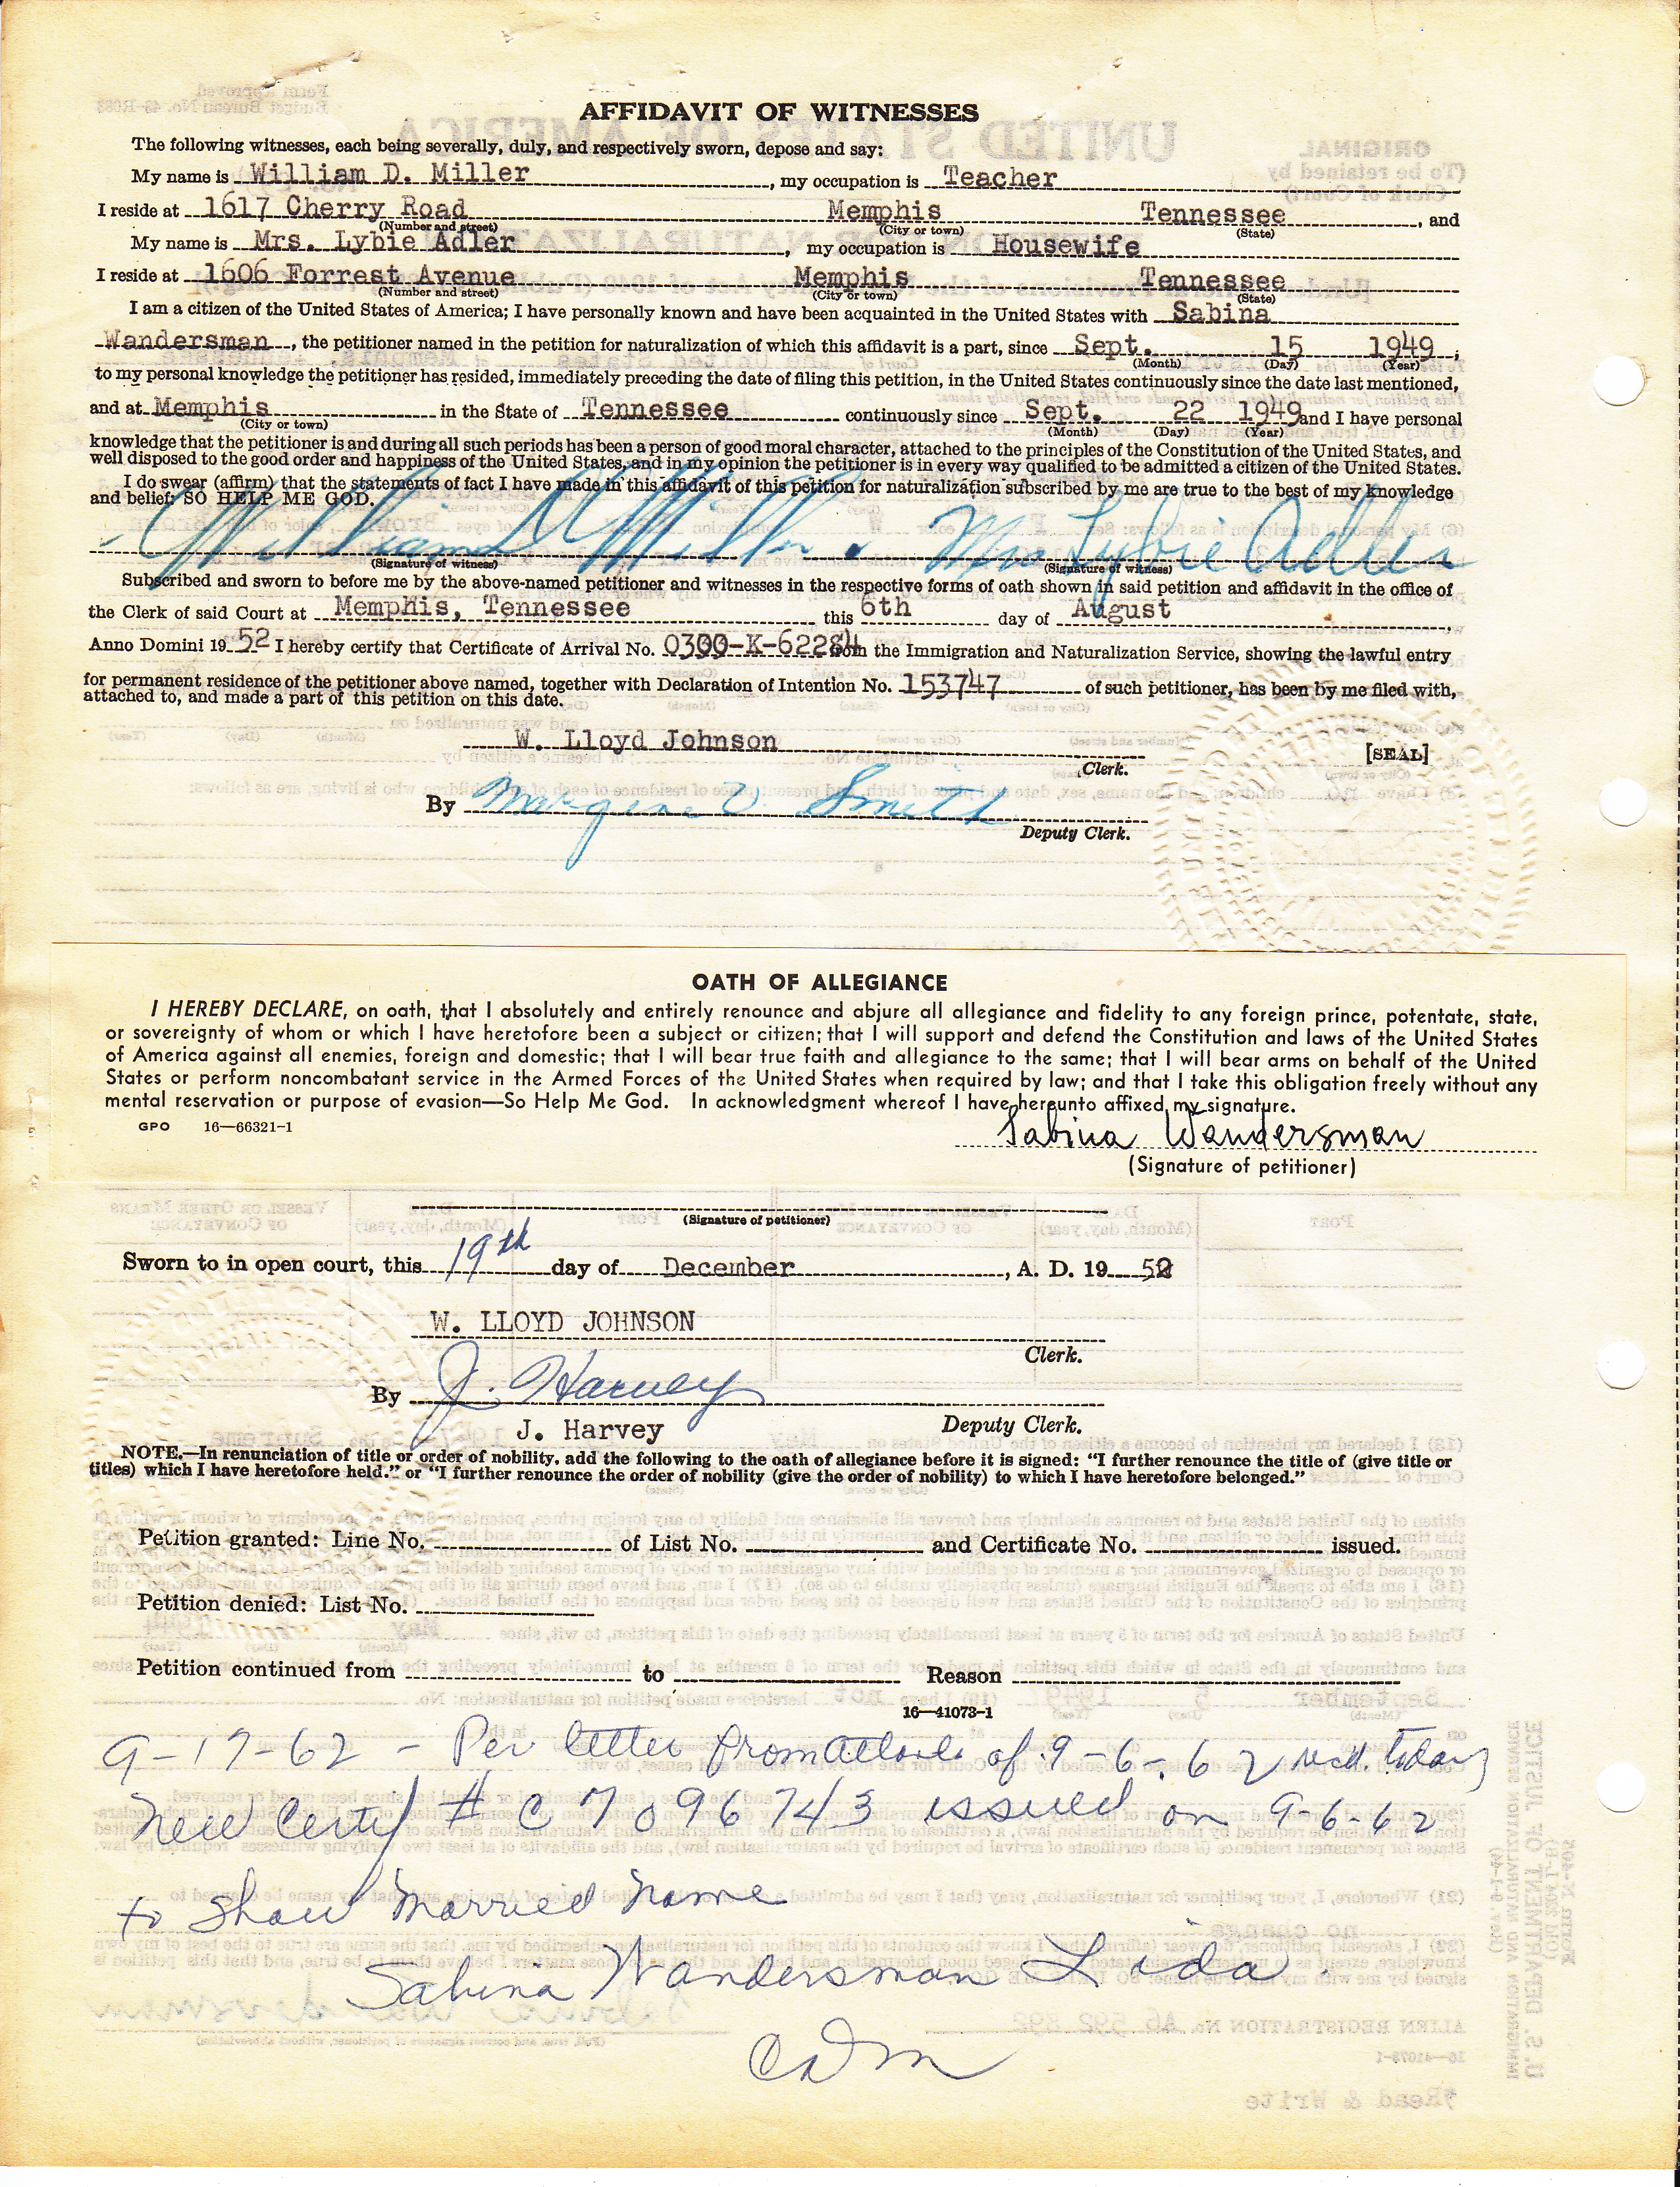 AFFIDAVIT OF WITNESSES
The following witnesses, each being severally, duly, and respectively sworn, depose and say:
My name is William D. Miller, my occupation is Teacher
I reside at 1617 Cherry Road Memphis Tennessee, and
(Number and street) (City or town) (State)
My name is Mrs. Lybie Adler, my occupation is Housewife
I reside at 1606 Forrest Avenue Memphis Tennessee
(Number and street) (City or town) (State)
I am a citizen of the United States of America; I have personally known and have been acquainted in the United States with Sabina
Wandersman, the petitioner named in the petition for naturalization of which this affidavit is a part, since Sept. 15 1949;
(Month) (Day) (Year)
to my personal knowledge the petitioner has resided, immediately preceding the date of filing this petition, in the United States continuously since the date last mentioned,
and at Memphis in the State of Tennessee continuously since Sept. 22 1949 and I have personal
(City or town) (Month) (Day) (Year)
knowledge that the petitioner is and during all such periods has been a person of good moral character, attached to the principles of the Constitution of the United States, and
well disposed to the good order and happiness of the United States, and in my opinion the petitioner is in every way qualified to be admitted a citizen of the United States.
I do swear (affirm) that the statements of fact I have made in this affidavit of this petition for naturalization subscribed by me are true to the best of my knowledge
and belief: SO HELP ME GOD.
William D Miller. Mrs Lybie Adler
(Signature of witness) (Signature of witness)
Subscribed and sworn to before me by the above-named petitioner and witnesses in the respective forms of oath shown in said petition and affidavit in the office of
the Clerk of said Court at Memphis, Tennessee this 6th day of August,
Anno Domini 19 52 I hereby certify that Certificate of Arrival No. 0300-K-62284 from the Immigration and Naturalization Service, showing the lawful entry
for permanent residence of the petitioner above named, together with Declaration of Intention No. 153747 of such petitioner, has been by me filed with,
attached to, and made a part of this petition on this date.
W. Lloyd Johnson [SEAL]
Clerk.
By Smith
Deputy Clerk.
OATH OF ALLEGIANCE
I HEREBY DECLARE, on oath, that I absolutely and entirely renounce and abjure all allegiance and fidelity to any foreign prince, potentate, state,
or sovereignty of whom or which I have heretofore been a subject or citizen; that I will support and defend the Constitution and laws of the United States
of America against all enemies, foreign and domestic; that I will bear true faith and allegiance to the same; that I will bear arms on behalf of the United
States or perform noncombatant service in the Armed Forces of the United States when required by law; and that I take this obligation freely without any
mental reservation or purpose of evasion—So Help Me God. In acknowledgment whereof I have hereunto affixed my signature.
GPO 16—66321-1
Sabina Wandersman
(Signature of petitioner)
(Signature of petitioner)
Sworn to in open court, this 19th day of December, A. D. 19 52
W. LLOYD JOHNSON
Clerk.
By J. Harvey
J. Harvey Deputy Clerk.
NOTE.—In renunciation of title or order of nobility, add the following to the oath of allegiance before it is signed: “I further renounce the title of (give title or
titles) which I have heretofore held.” or “I further renounce the order of nobility (give the order of nobility) to which I have heretofore belonged.”
Petition granted: Line No. of List No. and Certificate No. issued.
Petition denied: List No.
Petition continued from to Reason
16—41073-1
9-17-62 - Per letter from of 9-6-62 recd. today
New Certif # C 7096743 issued on 9-6-62
to Show Married Name
Sabina Wandersman Lida.